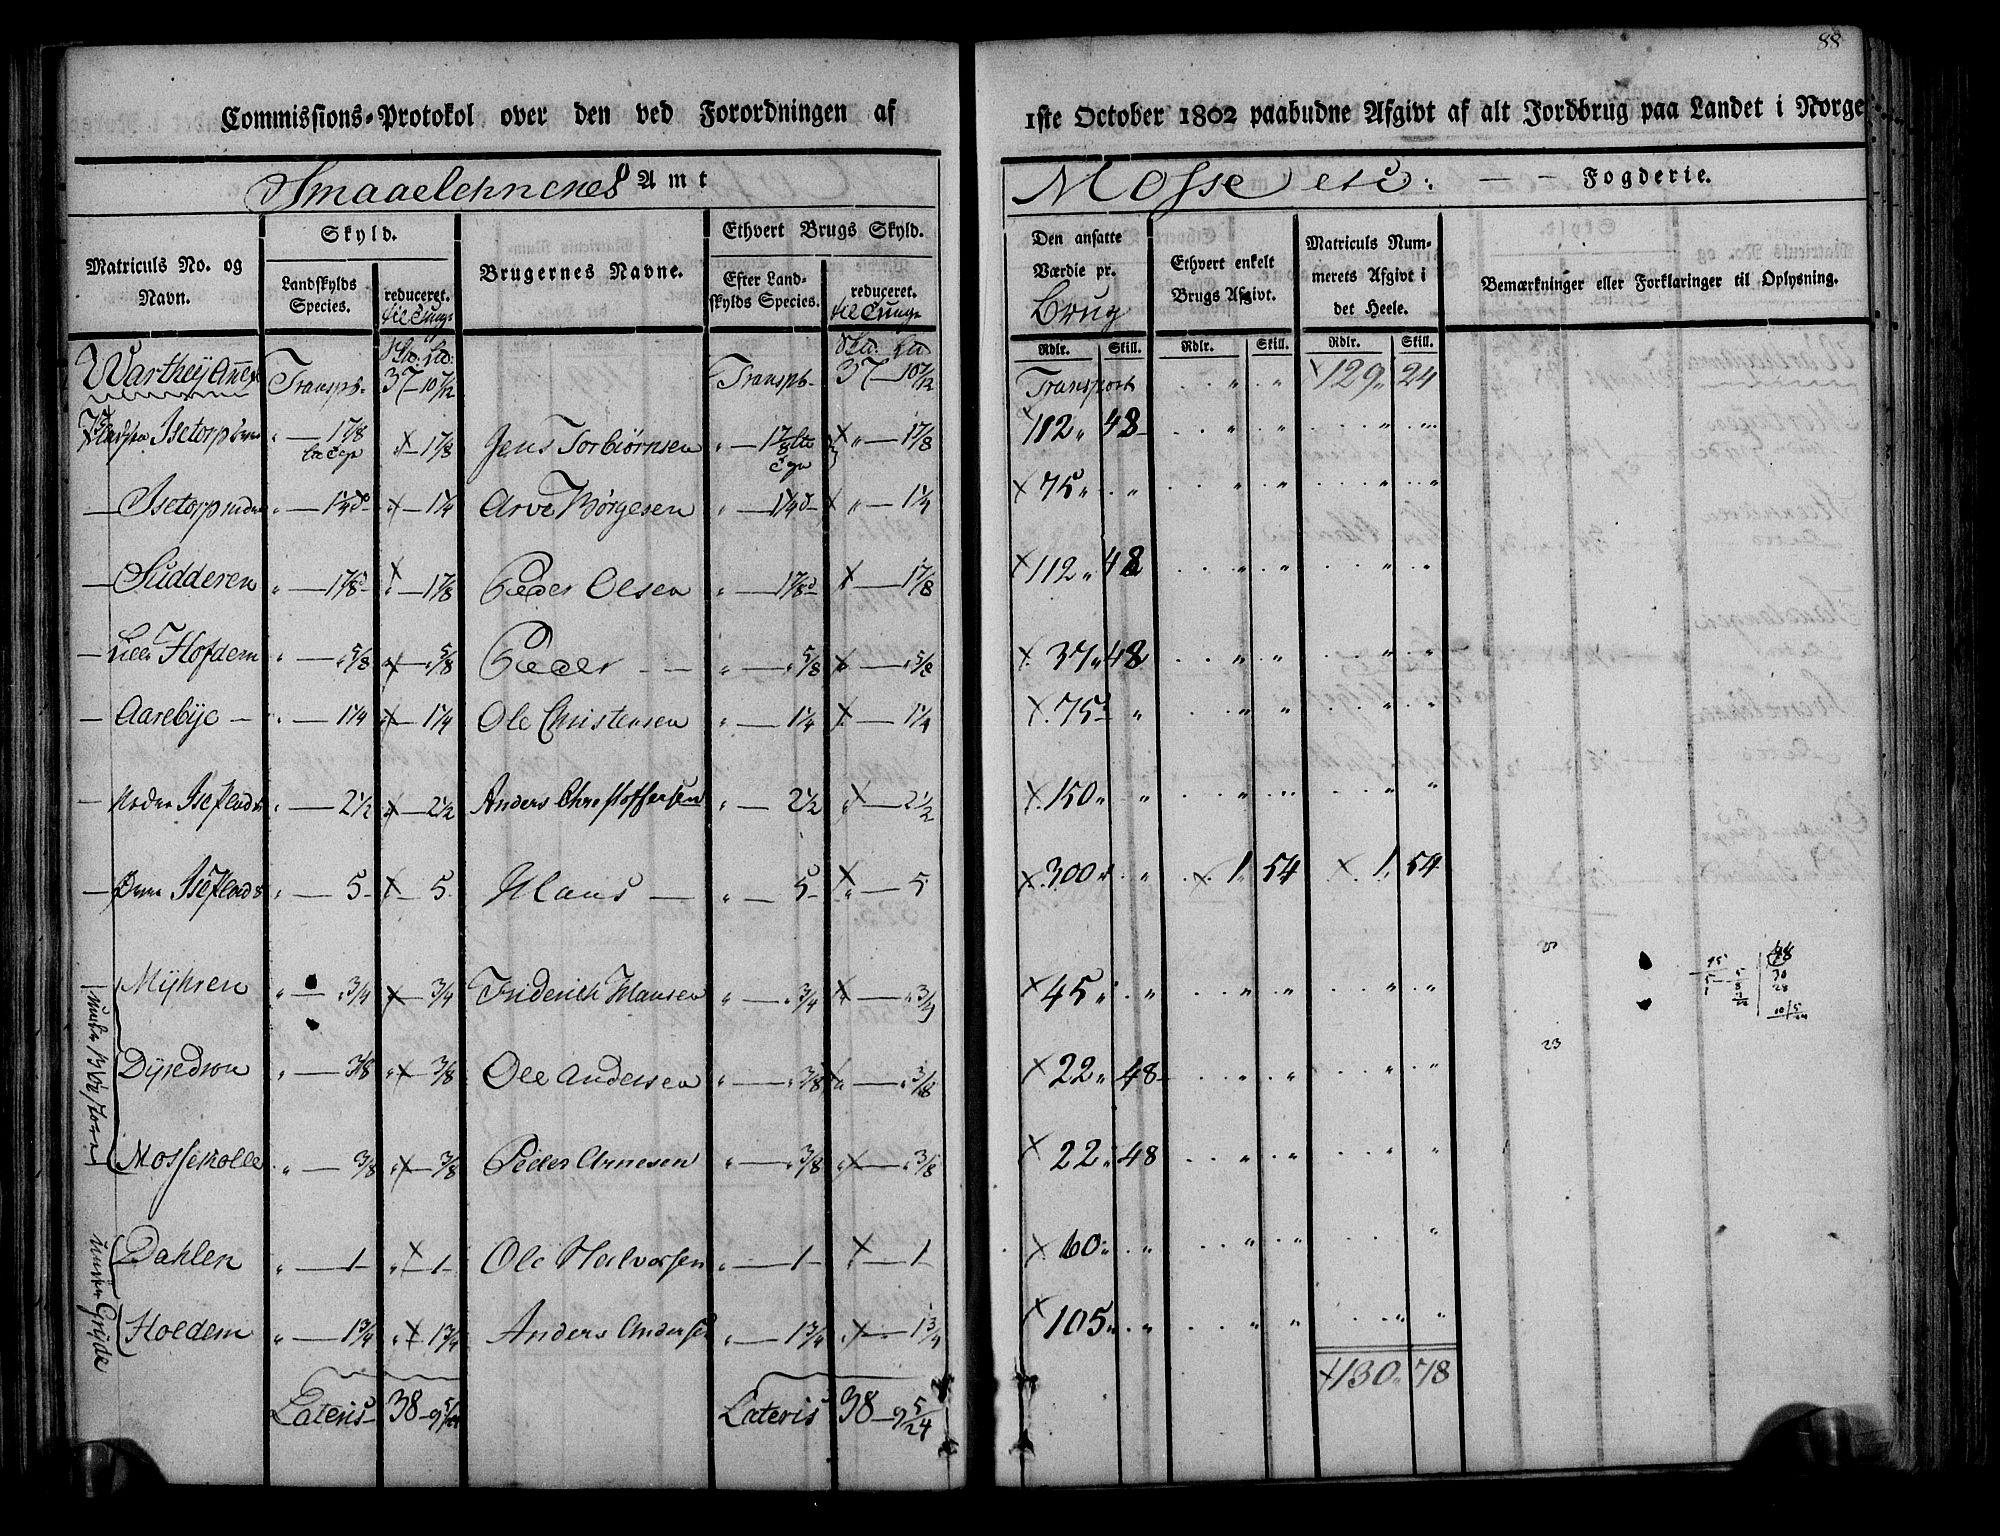 88
Commissions-Protokol over den ved Forordningen af 1ste October 1802 paabudne Afgivt af alt Jordbrug paa Landet i Norge
Smaaelehnenes Amt
Mosse etc: — — Fogderie.
Matriculs No. og Navn.
Skyld.
Landskylds Species.
reduceret. til Tunge
Brugernes Navne.
Ethvert Brugs Skyld.
Efter Landskylds Species.
reduceret. til Tunge
Den ansatte Værdie pr. Brug
Ethvert enkelt Brugs Afgivt.
Matriculs Nummerets Afgivt i det Heele.
Bemærkninger eller Forklaringer til Oplysning.
Rdlr. Skill. Rdlr. Skill. Rdlr. Skill.
Warthey Transpt. 37-10 7/12 Transpt. 37-10 7/12 Transport " " 129 " 24
Isetorp " — 1 7/8 x 1 7/8 Jens Torbiørnsen " — 1 7/8 x " — 1 7/8 x 112 " 48
— Isetorp " — 1 1/4 x — 1 1/4 Arve Börgesen " — 1 1/4 x " — 1 1/4 x 75 " "
— Sudderen " — 1 7/8 x — 1 7/8 Peder Olsen " — 1 7/8 x — 1 7/8 x 112 " 48
— Lille Hofdem " — " 5/8 x — " 5/8 Peder — — " — " 5/8 x — " 5/8 x 37 " 48
— Aarebye — " — 1 1/4 x — 1 1/4 Ole Christensen " — 1 1/4 x — 1 1/4 x 75 "
— Isefland " — 2 1/2 x — 2 1/2 Anders Christoffersen " — 2 1/2 x — 2 1/2 x 150 " "
— Isefland " — 5 x — 5 Klaus — " — 5 x — 5 x 300 " " x 1 " 54 x 1 " 54
Myhren " — " 3/4 x — 3/4 Friderich Klausen " — " 3/4 x — " 3/4 x 45 " "
" — 3/8 x — 3/8 Ole Andersen " — " 3/8 x — " 3/8 x 22 " 48
23
Mosseskolle " — 3/8 x — 3/8 Peder Arnesen " — " 3/8 x — " 3/8 x 22 " 48
Dahlen " — 1 x — 1 Ole Halvorsen " — 1 x — 1 x 60 " "
Holdem " — 1 3/4 x — 1 3/4 Anders Anders " — 1 3/4 x — 1 3/4 x 105 " "
x 130 " 78
Lateris 38-9 5/24 Lateris 38-9 5/24